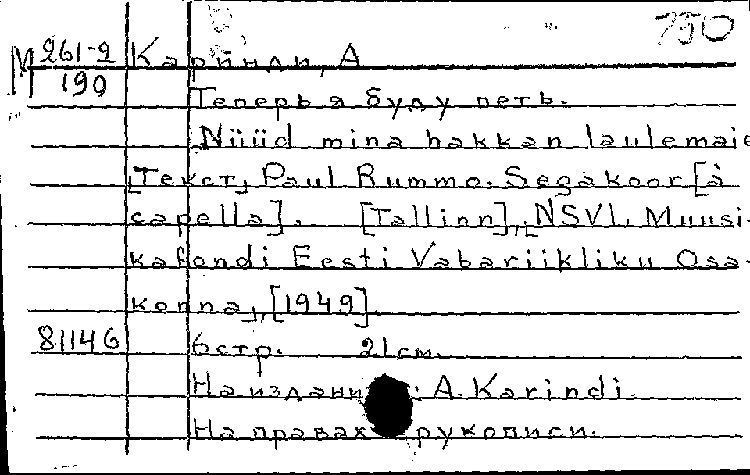 750
М 261-2 Каринди, А
190
Теперь я буду петь.
Nüüd mina hakkan laulemaie
[Текст] Paul Rummo. Segakoor [à
capella]. [Tallinn], NSVL Muusi-
kafondi Eesti Vabariikliku Osa-
konna, [1949]
81146 6 стр. 21 см.
На издани : A. Karindi.
На правах рукописи.